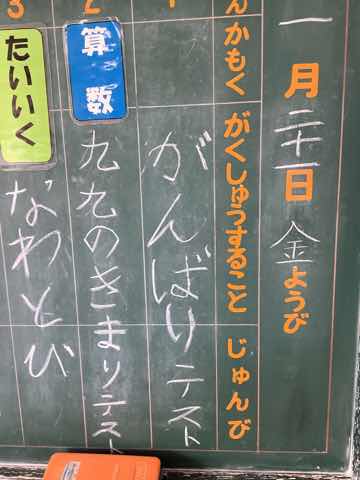 一月二十一日 金ようび
んかもく がくしゅうすること じゅんび
1 がんばりテスト
2 算数 九九のきまりテスト
3 たいいく なわとび